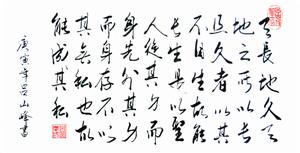 天長地久天
地之所以长
且久者以其
不自生故能
长生是以聖
人後其身而
身先外其身
而身存不以
其無私也故
能成其私
庚寅年吕山峰書